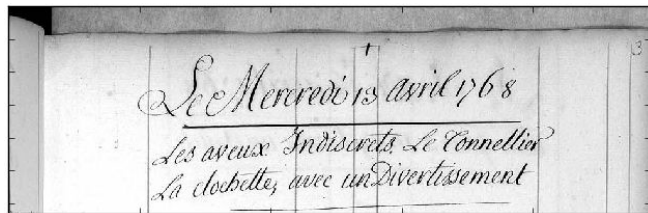 Le Mercredi 13 avril 1768
Les aveux Indiscrets, Le Tonnellier
La clochette, avec un Divertissement